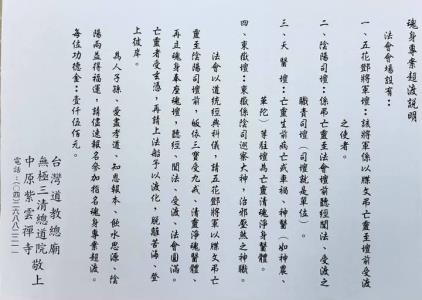 魂身專案超渡說明
法會會場設有：
一、五花鄧將軍壇：該將軍係以牒文弔亡靈至壇前受渡
之使者。
二、陰陽司壇：係弔亡靈至法會壇前聽經聞法、受渡之
職責司壇（司壇就是單位）。
三、天醫壇：亡靈生前病亡或車禍、神醫（如神農、
華陀）等駐壇為亡靈清魂淨身醫體。
四、東嶽壇：東嶽係陰司巡察大神，治邪壓煞之神職。
法會以道統經典科儀，請五花鄧將軍以牒文弔亡
靈至陰陽司壇前，皈依三寶受九戒、清靈淨魂醫體、
再且魂身奉座魂壇，聽經、聞法、受渡、法會圓滿。
亡靈者受玄憑，再請上法船予以渡化，脫離苦海、登
上彼岸。
為人子孫、愛盡孝道、知恩報本、飲水思源、陰
陽兩益得福運，請儘速報名參加指名魂身專案超渡。
每位功德金：壹仟伍佰元。
台灣道教總廟
無極三清總道院敬上
中原紫雲禪寺